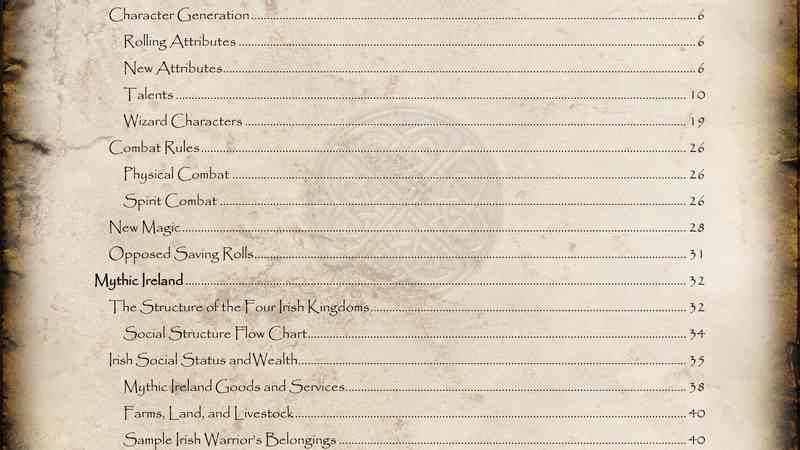 Character Generation........................................6
Rolling Attributes........................................6
New Attributes........................................6
Talents........................................10
Wizard Characters........................................19
Combat Rules........................................26
Physical Combat........................................26
Spirit Combat........................................26
New Magic........................................28
Opposed Saving Rolls........................................31
Mythic Ireland........................................32
The Structure of the Four Irish Kingdoms........................................32
Social Structure Flow Chart........................................34
Irish Social Status and Wealth........................................35
Mythic Ireland Goods and Services........................................38
Farms, Land, and Livestock........................................40
Sample Irish Warrior's Belongings........................................40